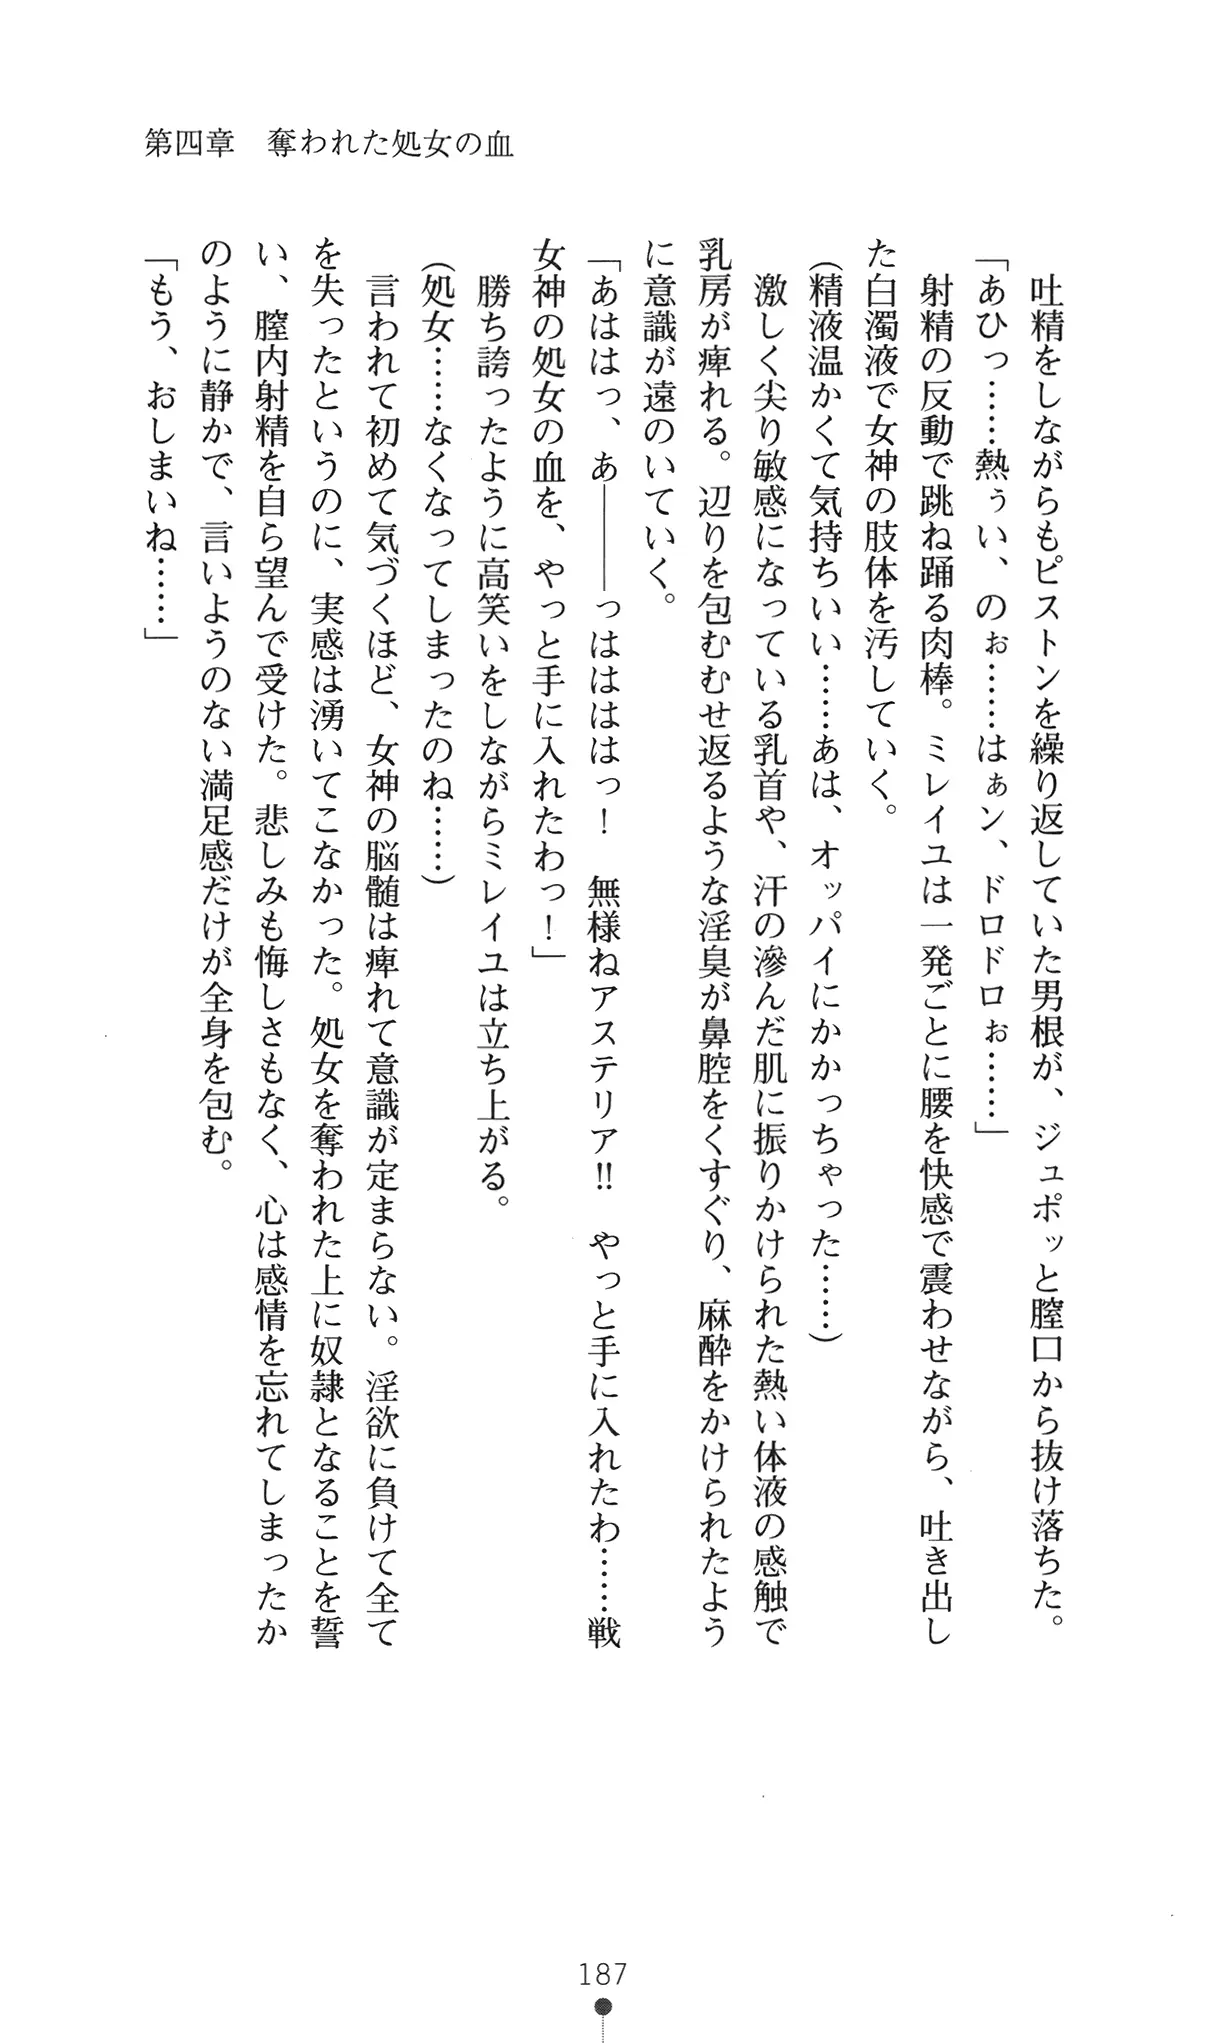 第四章　奪われた処女の血
　吐精をしながらもピストンを繰り返していた男根が、ジュポッと膣口から抜け落ちた。
「あひっ……熱ぅい、のぉ……はぁン、ドロドロぉ……」
　射精の反動で跳ね踊る肉棒。ミレイユは一発ごとに腰を快感で震わせながら、吐き出し
た白濁液で女神の肢体を汚していく。
（精液温かくて気持ちいい……あは、オッパイにかかっちゃった……）
　激しく尖り敏感になっている乳首や、汗の滲んだ肌に振りかけられた熱い体液の感触で
乳房が痺れる。辺りを包むむせ返るような淫臭が鼻腔をくすぐり、麻酔をかけられたよう
に意識が遠のいていく。
「あははっ、あ――――っははははっ！　無様ねアステリア!!　やっと手に入れたわ……戦
女神の処女の血を、やっと手に入れたわっ！」
　勝ち誇ったように高笑いをしながらミレイユは立ち上がる。
（処女……なくなってしまったのね……）
　言われて初めて気づくほど、女神の脳髄は痺れて意識が定まらない。淫欲に負けて全て
を失ったというのに、実感は湧いてこなかった。処女を奪われた上に奴隷となることを誓
い、膣内射精を自ら望んで受けた。悲しみも悔しさもなく、心は感情を忘れてしまったか
のように静かで、言いようのない満足感だけが全身を包む。
「もう、おしまいね……」
187